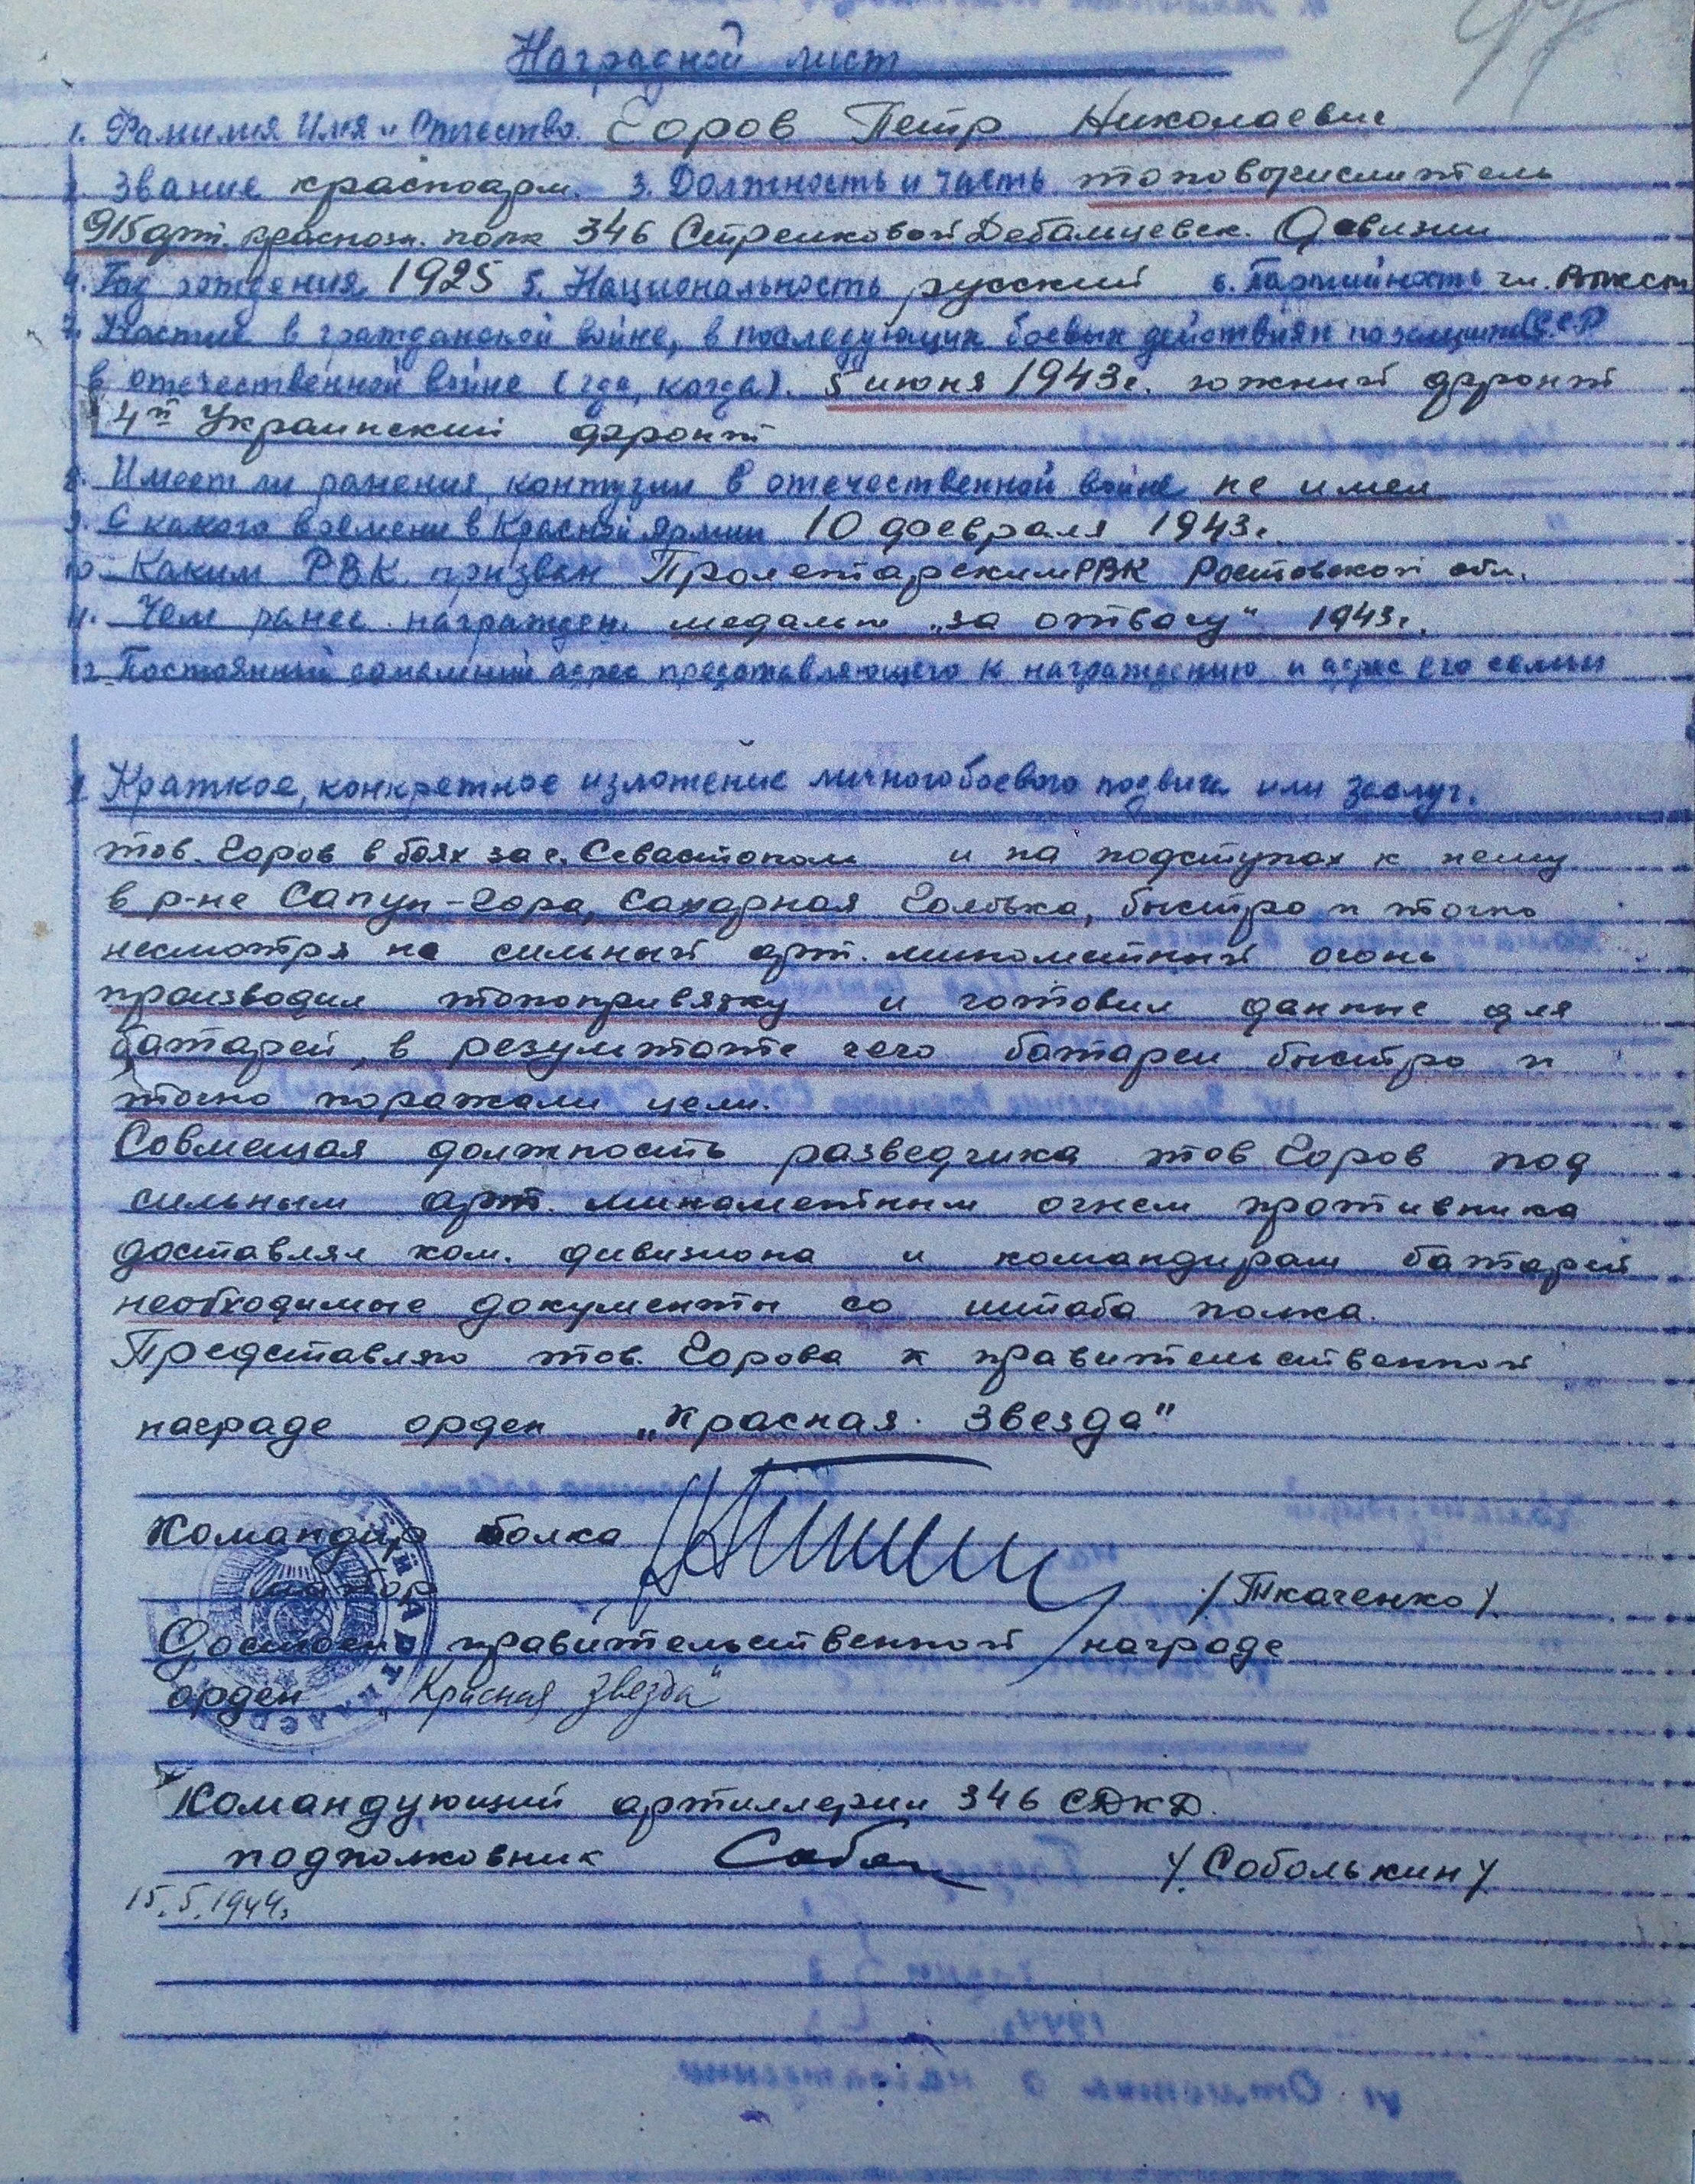 Наградной лист
1. Фамилия Имя и Отчество. Егоров Петр Николаевич
2. Звание красноарм. 3. Должность и часть топовычислитель
915 арт. краснозн. полк 346 Стрелковой Дебальцевск. Дивизии
4. Год рождения 1925 5. Национальность русский 6. Партийность чл. ВЛКСМ
7. Участие в гражданской войне, в последующих боевых действиях по защите СССР
в отечественной войне (где, когда). 5 июня 1943г. южный фронт
4й Украинский фронт
8. Имеет ли ранения, контузии в отечественной войне не имел
9. С какого времени в Красной Армии 10 февраля 1943г.
10. Каким РВК призван Пролетарским РВК Ростовской обл.
11. Чем ранее награжден медалью „за отвагу" 1943г.
12. Постоянный домашний адрес представляющего к награждению и адрес его семьи
Краткое, конкретное изложение личного боевого подвига или заслуг.
тов. Егоров в боях за г. Севастополь и на подступах к нему
в р-не Сапун-гора, Сахарная Головка, быстро и точно
несмотря на сильный арт. минометный огонь
производил топопривязку и готовил данные для
батарей, в результате чего батареи быстро и
точно поражали цели.
Совмещая должность разведчика тов Егоров под
сильным арт. минометным огнем противника
доставлял ком. дивизиона и командирам батарей
необходимые документы со штаба полка.
Представляю тов. Егорова к правительственной
награде орден „Красная Звезда"
Командир полка
майор /Ткаченко/
Достоен правительственной награде
орден „Красная Звезда"
Командующий артиллерии 346 СДКД.
подполковник /Соболькин/
15.5.1944г.